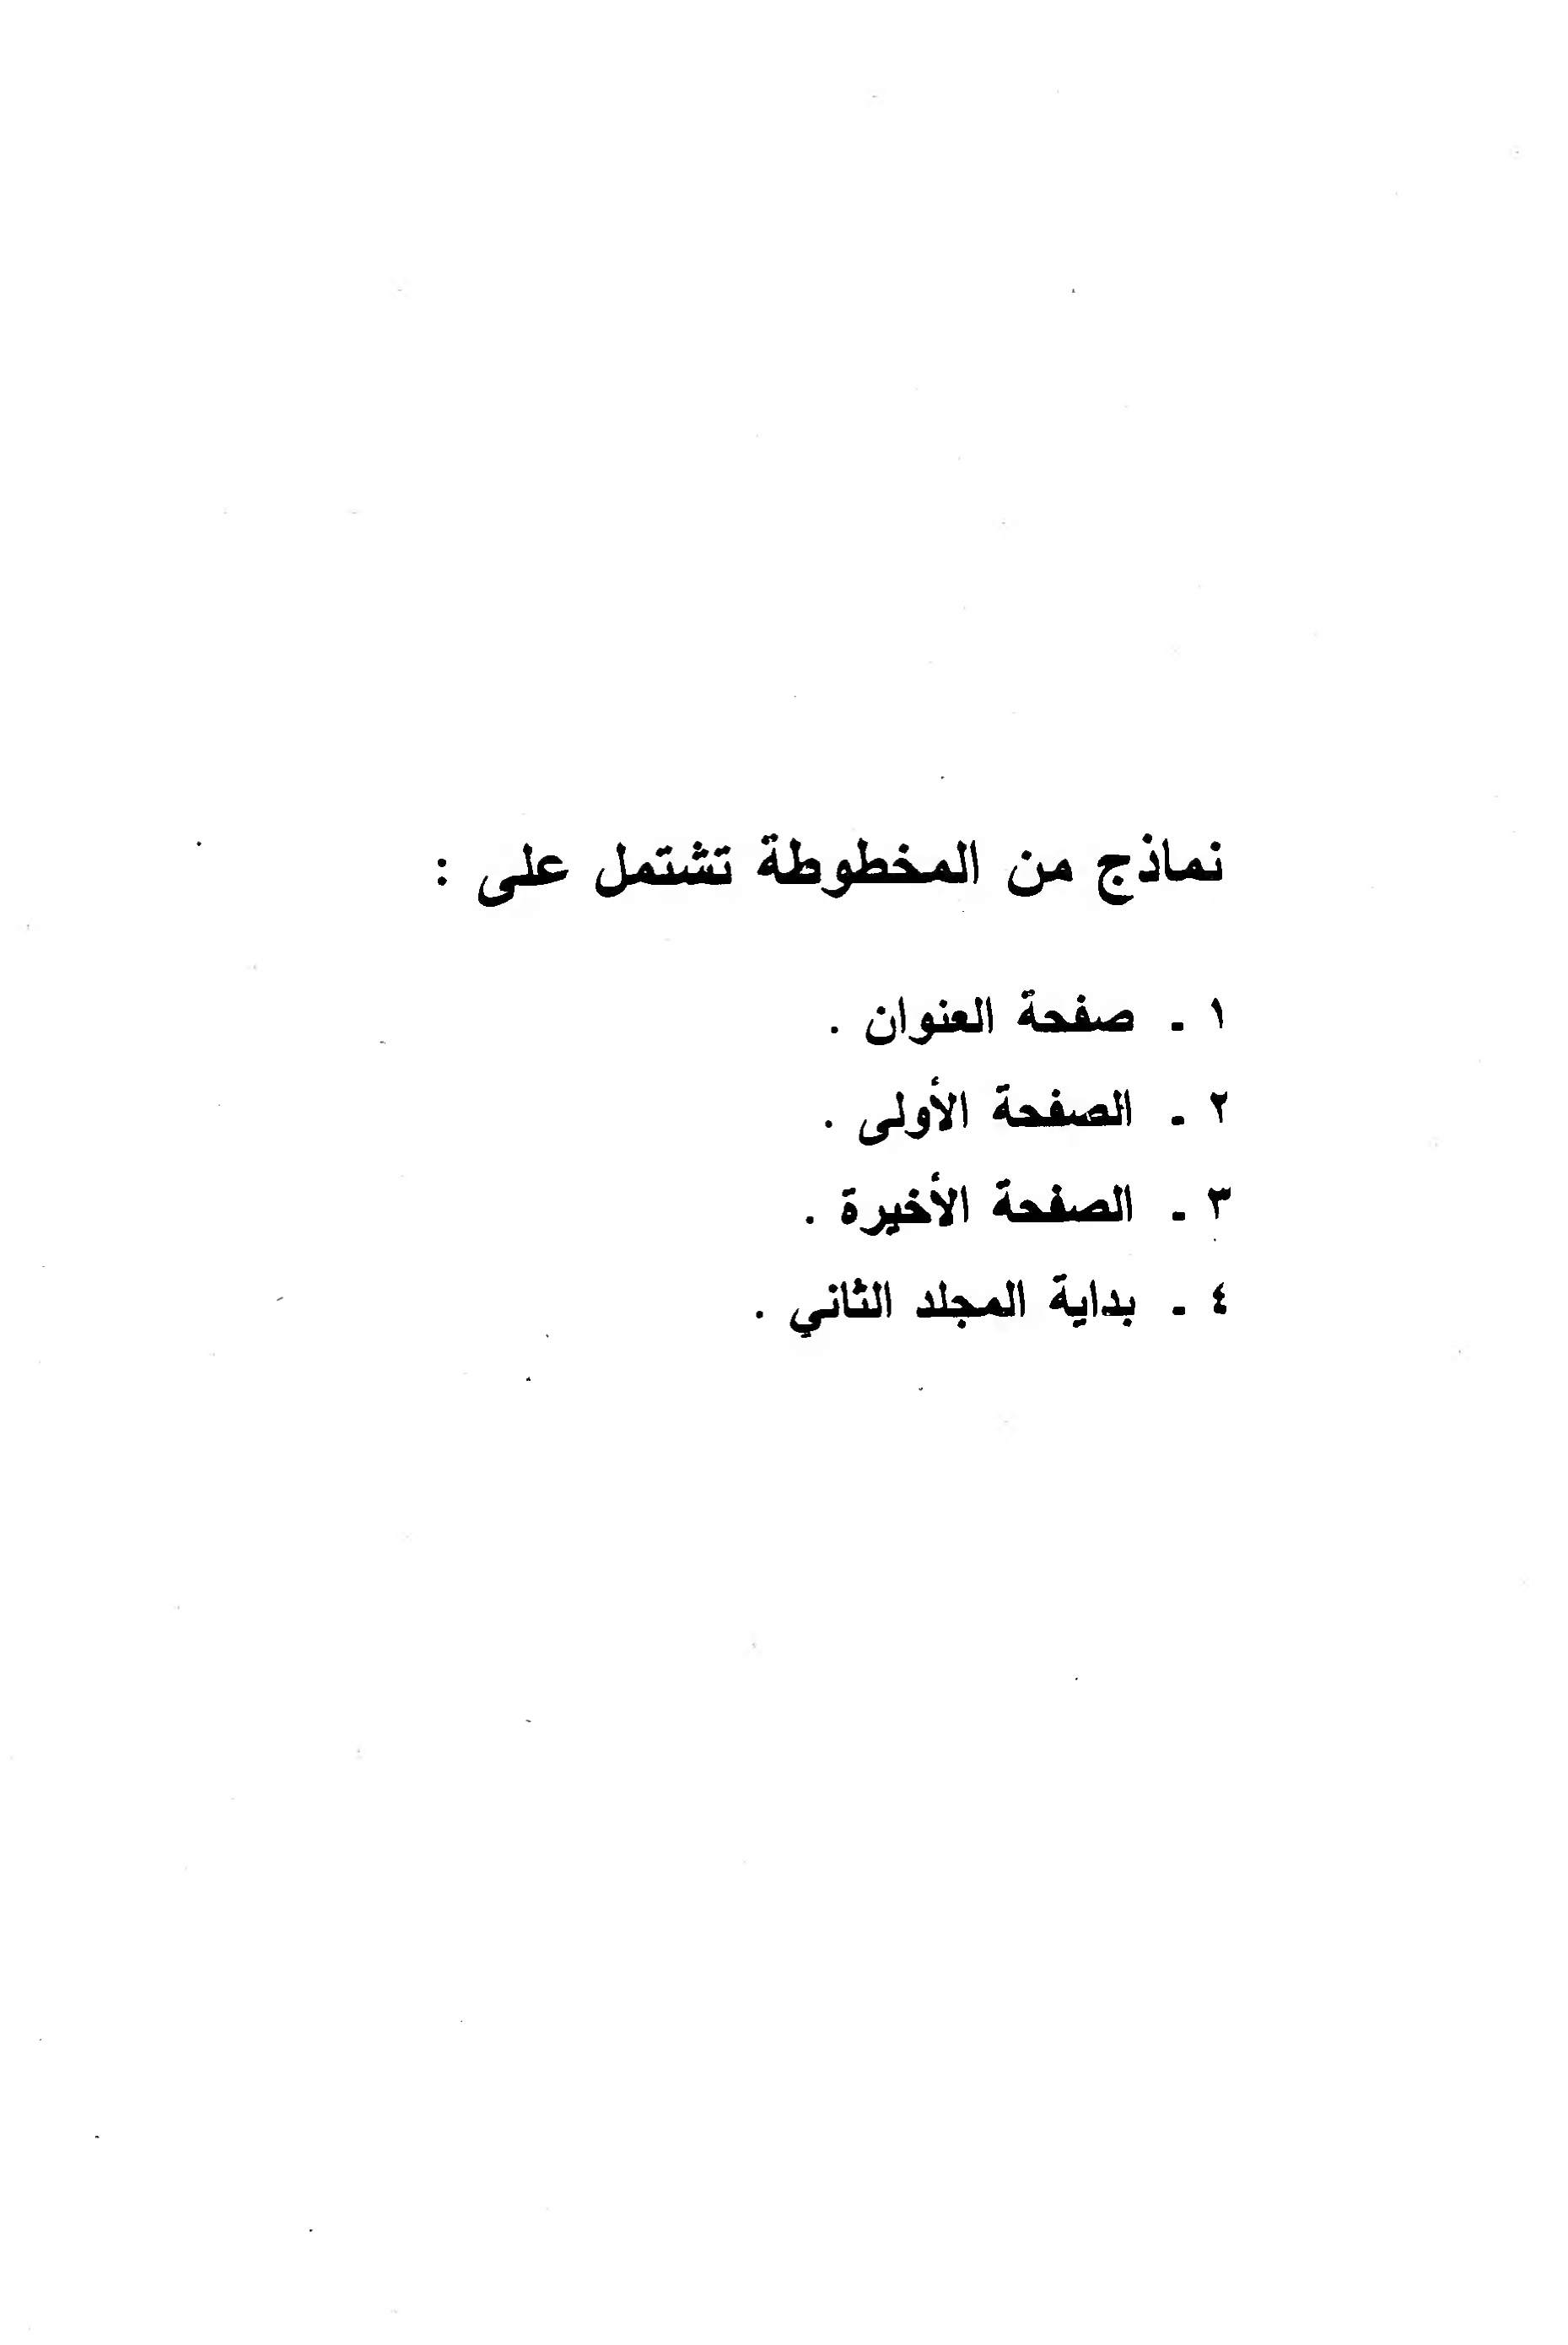 نماذج من المخطوطة تشتمل على :
١ ـ صفحة العنوان .
٢ ـ الصفحة الأولى .
٣ ـ الصفحة الأخيرة .
٤ ـ بداية المجلد الثاني .